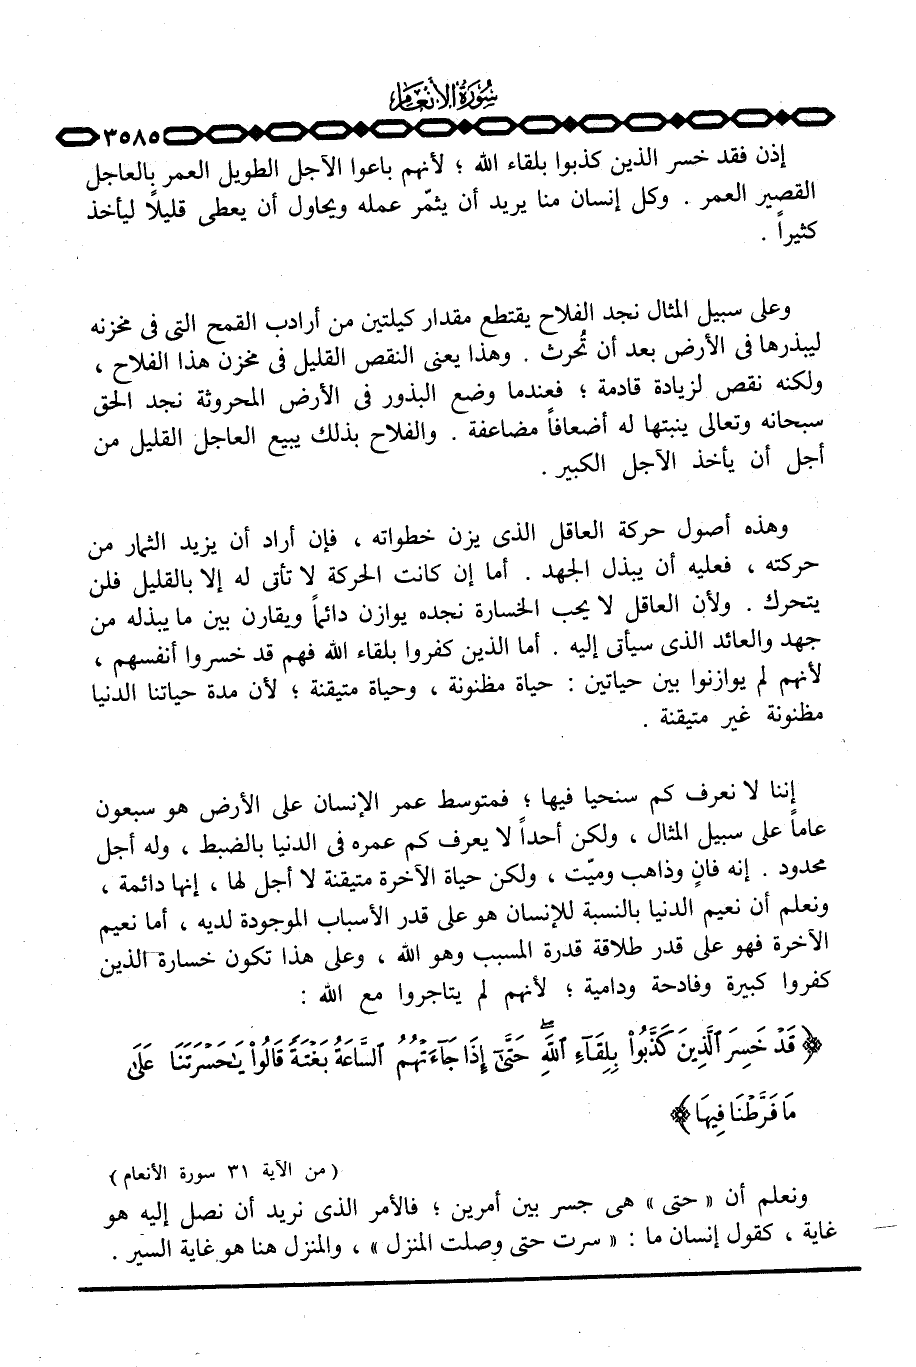 سورة الأنعام
٣٥٨٥
إذن فقد خسر الذين كذبوا بلقاء الله ؛ لأنهم باعوا الآجل الطويل العمر بالعاجل
القصير العمر . وكل إنسان منا يريد أن يثمّر عمله ويحاول أن يعطى قليلاً ليأخذ
كثيراً .
وعلى سبيل المثال نجد الفلاح يقتطع مقدار كيلتين من أرادب القمح التى فى مخزنه
ليبذرها فى الأرض بعد أن تُحرث . وهذا يعنى النقص القليل فى مخزن هذا الفلاح ،
ولكنه نقص لزيادة قادمة ؛ فعندما وضع البذور فى الأرض المحروثة نجد الحق
سبحانه وتعالى ينبتها له أضعافاً مضاعفة . والفلاح بذلك يبيع العاجل القليل من
أجل أن يأخذ الآجل الكبير .
وهذه أصول حركة العاقل الذى يزن خطواته ، فإن أراد أن يزيد الثمار من
حركته ، فعليه أن يبذل الجهد . أما إن كانت الحركة لا تأتى له إلا بالقليل فلن
يتحرك . ولأن العاقل لا يحب الخسارة نجده يوازن دائماً ويقارن بين ما يبذله من
جهد والعائد الذى سيأتى إليه . أما الذين كفروا بلقاء الله فهم قد خسروا أنفسهم ،
لأنهم لم يوازنوا بين حياتين : حياة مظنونة ، وحياة متيقنة ؛ لأن مدة حياتنا الدنيا
مظنونة غير متيقنة .
إننا لا نعرف كم سنحيا فيها ؛ فمتوسط عمر الإنسان على الأرض هو سبعون
عاماً على سبيل المثال ، ولكن أحداً لا يعرف كم عمره فى الدنيا بالضبط ، وله أجل
محدود . إنه فانٍ وذاهب وميّت ، ولكن حياة الآخرة متيقنة لا أجل لها ، إنها دائمة ،
ونعلم أن نعيم الدنيا بالنسبة للإنسان هو على قدر الأسباب الموجودة لديه ، أما نعيم
الآخرة فهو على قدر طلاقة قدرة المسبب وهو الله ، وعلى هذا تكون خسارة الذين
كفروا كبيرة وفادحة ودامية ؛ لأنهم لم يتاجروا مع الله :
﴿ قَدْ خَسِرَ ٱلَّذِينَ كَذَّبُوا۟ بِلِقَآءِ ٱللَّهِ ۖ حَتَّىٰٓ إِذَا جَآءَتْهُمُ ٱلسَّاعَةُ بَغْتَةً قَالُوا۟ يَٰحَسْرَتَنَا عَلَىٰ
مَا فَرَّطْنَا فِيهَا ﴾
( من الآية ٣١ سورة الأنعام )
ونعلم أن « حتى » هى جسر بين أمرين ؛ فالأمر الذى نريد أن نصل إليه هو
غاية ، كقول إنسان ما : « سرت حتى وصلت المنزل » ، والمنزل هنا هو غاية السير .